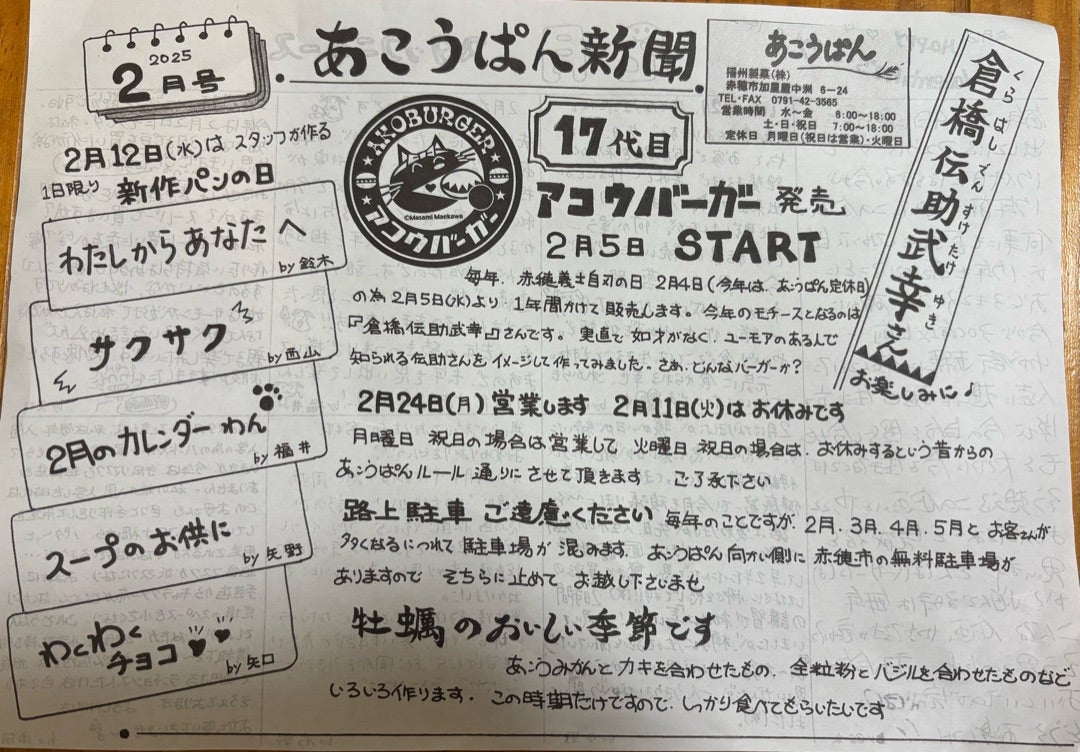 2025
2月号
あこうぱん新聞
あこうぱん
福州製菓(株)
赤穂市加里屋中洲 6-24
TEL・FAX 0791-42-3565
営業時間 水～金 8:00～18:00
土・日・祝日 7:00～18:00
定休日 月曜日(祝日は営業)・火曜日
2月12日(水)は スタッフが作る
1日限り 新作パンの日
わたしからあなたへ
by 鈴木
サクサク
by 西山
2月のカレンダーわん
by 福井
スープのお供に
by 矢野
わくわく
チョコ
by 矢口
AKOBURGER
©Masami Maekawa
アコウバーガー
17代目
アコウバーガー 発売
2月5日 START
くらはしでんすけたけゆき
倉橋伝助武幸さん
お楽しみに♪
毎年、赤穂義士自刃の日 2月4日(今年は、あこうぱん定休日)
の為2月5日(水)より、1年間かけて販売します。今年のモチーフとなるのは
『倉橋伝助武幸』さんです。実直で如才がなく、ユーモアのある人で
知られる伝助さんをイメージして作ってみました。さぁ、どんなバーガーか?
2月24日(月)営業します 2月11日(火)はお休みです
月曜日 祝日の場合は営業して 火曜日 祝日の場合は、お休みするという昔からの
あこうぱんルール通りにさせて頂きます ご了承下さい
路上駐車 ご遠慮ください 毎年のことですが、2月、3月、4月、5月とお客さんが
多くなるにつれて駐車場が混みます。あこうぱん向かい側に赤穂市の無料駐車場が
ありますので そちらに止めて お越し下さいませ。
牡蠣のおいしい季節です
あこうみかんとカキを合わせたもの、全粒粉とバジルを合わせたものなど
いろいろ作ります。この時期だけですので、しっかり食べてもらいたいです